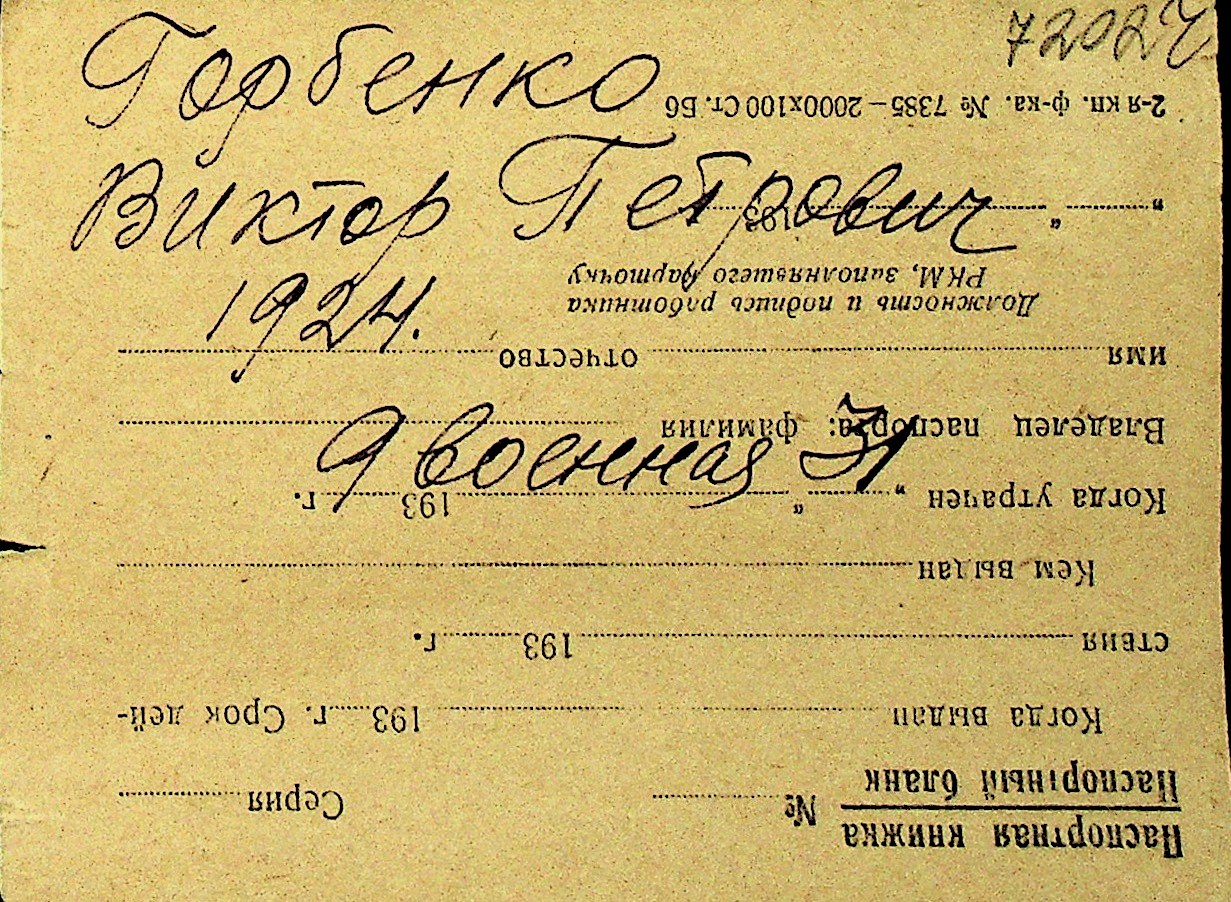 72024
Горбенко
Виктор Петрович
1924.
9 военная 31
Паспортная книжка
Паспортный бланк
№ Серия
Когда выдан 193 г. Срок дей-
ствия 193 г.
Кем выдан
Когда утрачен „ “ 193 г.
Владелец паспорта: фамилия
имя отчество
Должность и подпись работника
РКМ, заполнявшего карточку
„ “ 193
2-я кп. ф-ка. № 7385—2000х100 Ст. Б6